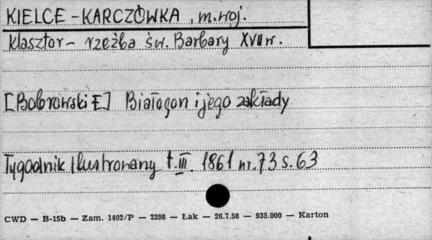 KIELCE - KARCZÓWKA, m. woj.
klasztor - rzeźba św. Barbary XVII w.
[Bobrowski E] Białogon i jego zakłady
Tygodnik Ilustrowany t. III. 1861 nr. 73 s. 63
CWD — B-15b — Zam. 1402/P — 2398 — Łak — 26.7.58 — 935.000 — Karton